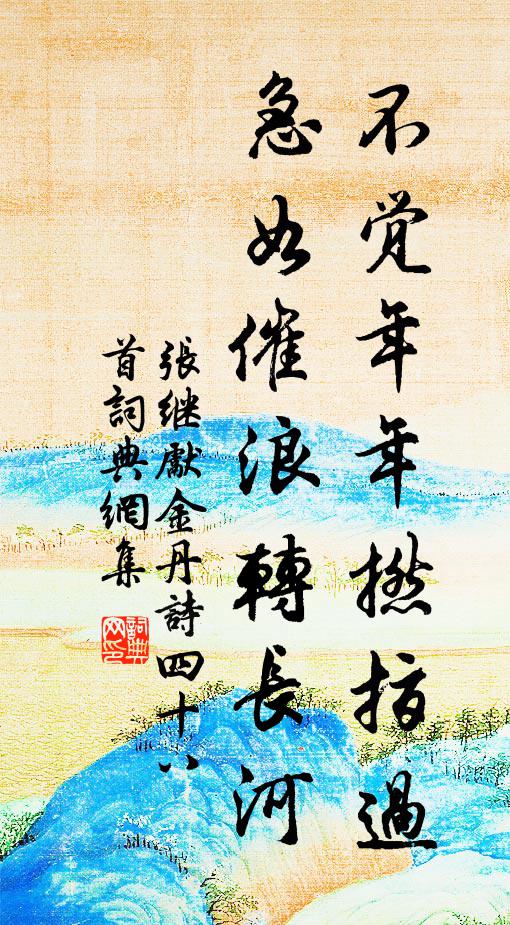 不覚年年撚指過
急如催浪轉長河
張继獻金丹詩四十八
首詞典網集
詞典
网印